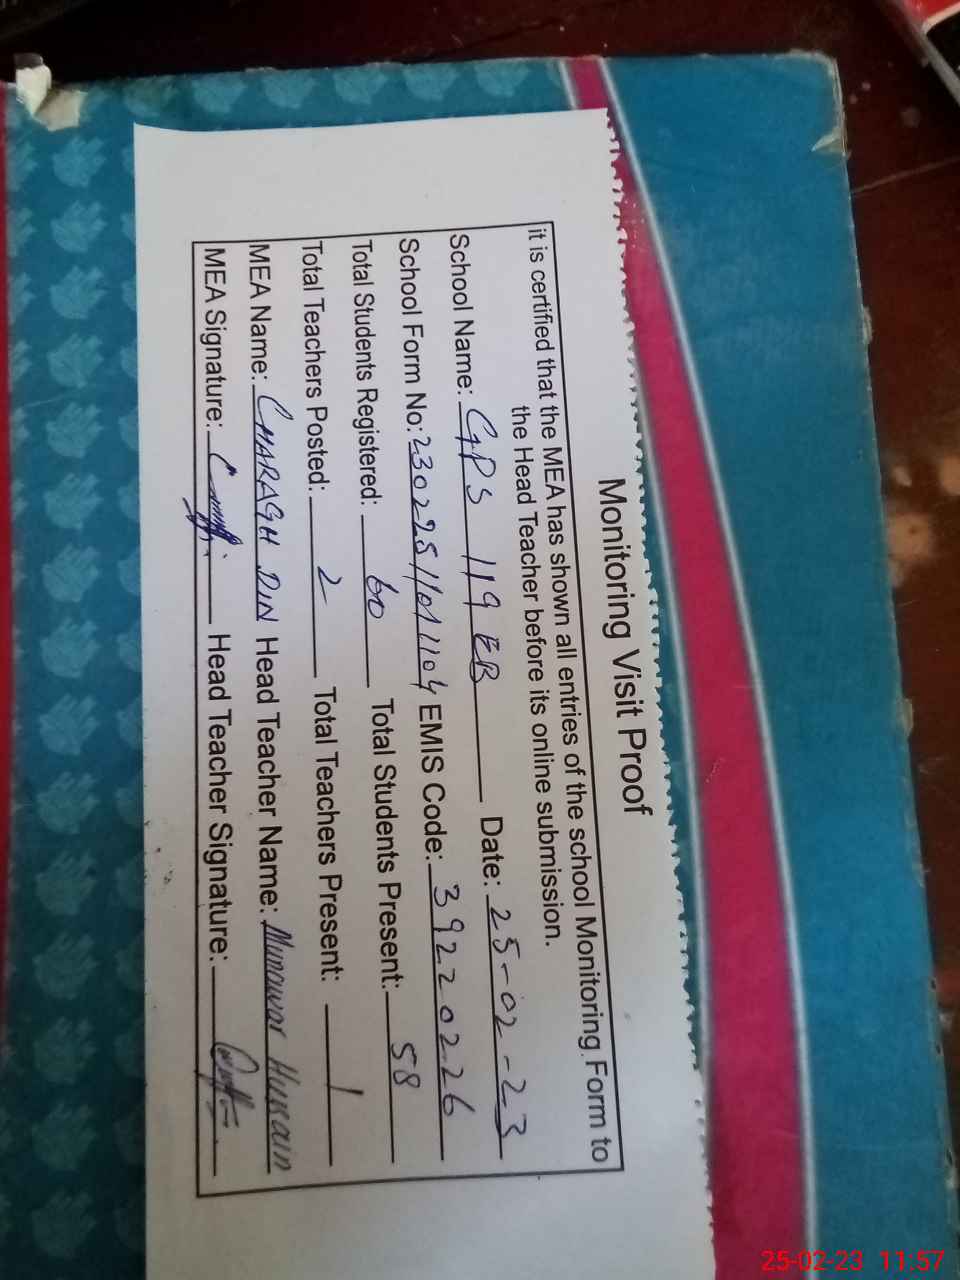 Monitoring Visit Proof
it is certified that the MEA has shown all entries of the school Monitoring Form to
the Head Teacher before its online submission.
School Name: GPS 119 EB Date: 25-02-23
School Form No: 2302251101104 EMIS Code: 39220226
Total Students Registered: 60 Total Students Present: 58
Total Teachers Posted: 2 Total Teachers Present: 1
MEA Name: CHARAGH DIN Head Teacher Name: Munawar Hussain
MEA Signature: Head Teacher Signature:
25-02-23 11:57